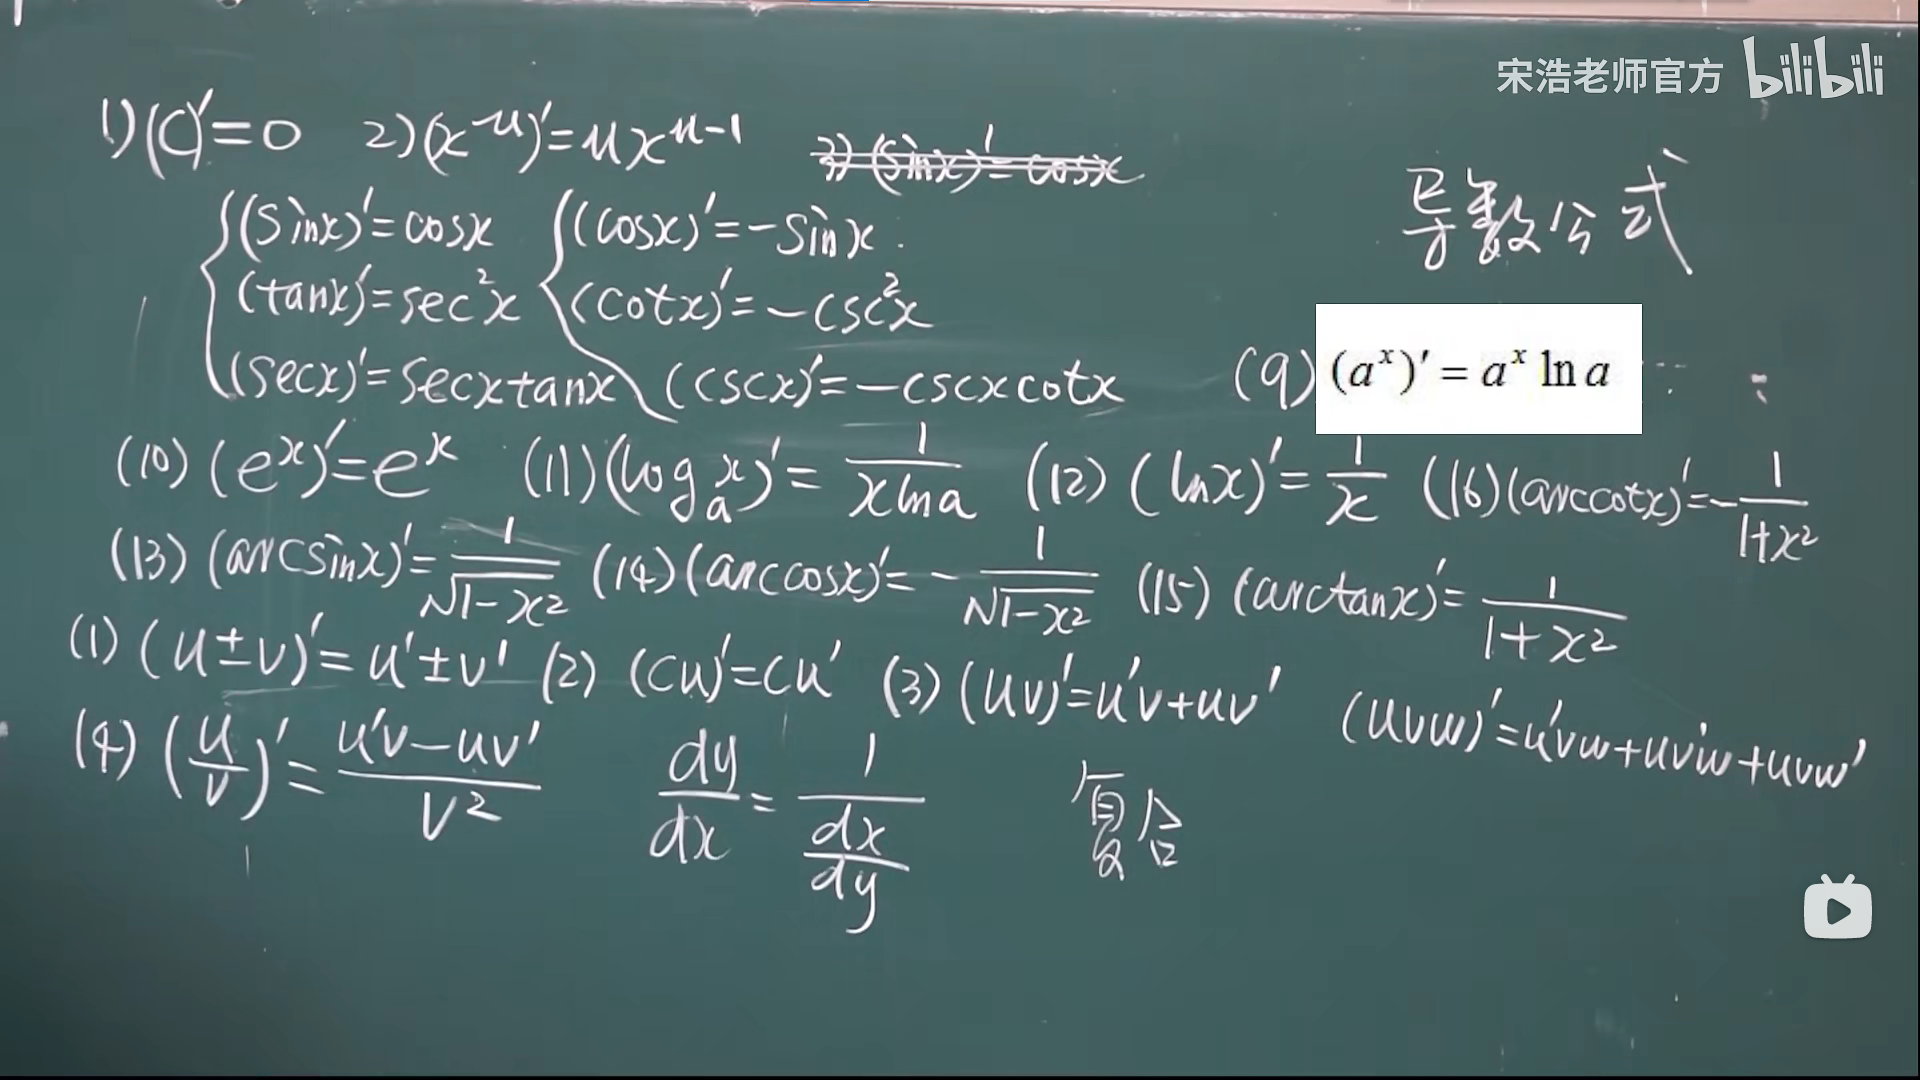 宋浩老师官方 bilibili
1) (C)′=0 2) (x^μ)′=μx^(μ-1) 3) (sinx)′=cosx
导数公式
(sinx)′=cosx (cosx)′=-sinx
(tanx)′=sec²x (cotx)′=-csc²x
(secx)′=secxtanx (cscx)′=-cscxcotx (9) (a^x)′ = a^x ln a
(10) (e^x)′=e^x (11) (log_a x)′= 1/(xlna) (12) (lnx)′= 1/x (16) (arccotx)′=- 1/(1+x²)
(13) (arcsinx)′= 1/√(1-x²) (14) (arccosx)′= - 1/√(1-x²) (15) (arctanx)′= 1/(1+x²)
(1) (u±v)′=u′±v′ (2) (cu)′=cu′ (3) (uv)′=u′v+uv′ (uvw)′=u′vw+uv′w+uvw′
(4) (u/v)′= (u′v-uv′)/v² dy/dx = 1/(dx/dy) 复合